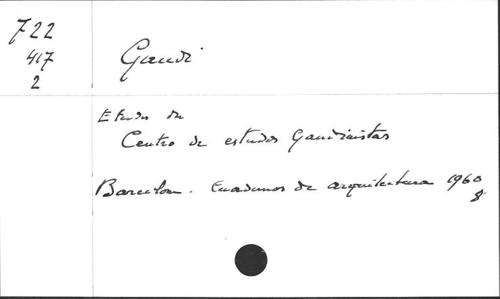 722
417
2
Gaudi
Etudes du
Centro de estudos Gaudinistas
Barcelone. Cuadernos de arquitectura 1960
8